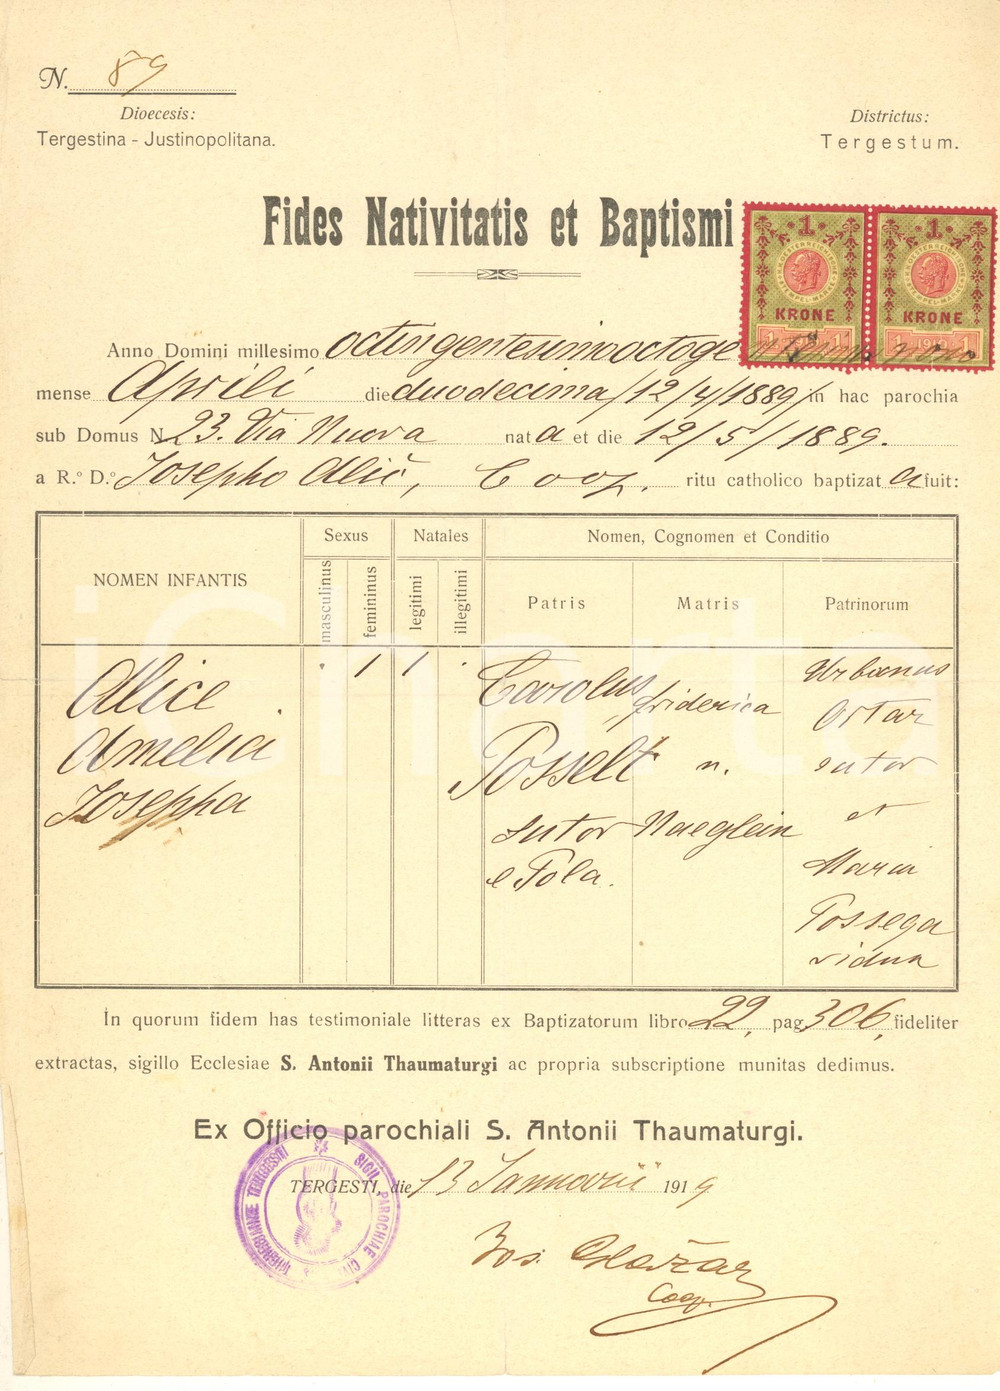 N. 89
Dioecesis:
Tergestina - Justinopolitana.
Districtus:
Tergestum.
Fides Nativitatis et Baptismi
1 KRONE 1 KRONE
Anno Domini millesimo octingentesimo octoge
mense Aprili die duodecima /12/4/1889/ in hac parochia
sub Domus N. 23. Via Nuova nat a et die 12/5/1889.
a R.º D.º Josepho Alič, Coop. ritu catholico baptizat a fuit:
NOMEN INFANTIS
Sexus
masculinus
femininus
Natales
legitimi
illegitimi
Nomen, Cognomen et Conditio
Patris
Matris
Patrinorum
Alice
Amelia
Josepha
1
1
Carolus
Posselt
sutor
e Pola.
Friderica
n.
Naeglein
Urbanus
Ostar
sutor
et
Maria
Possega
vidua
In quorum fidem has testimoniale litteras ex Baptizatorum libro 22, pag 306, fideliter
extractas, sigillo Ecclesiae S. Antonii Thaumaturgi ac propria subscriptione munitas dedimus.
Ex Officio parochiali S. Antonii Thaumaturgi.
TERGESTI, die 13 Januarii 1919
SIGIL. PAROCHIAE TERGESTI
Jos.
Coop.
iCharta